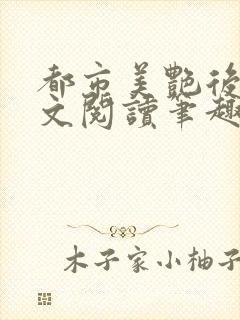 都市美艷後
文閱讀筆趣
木子家小柚子